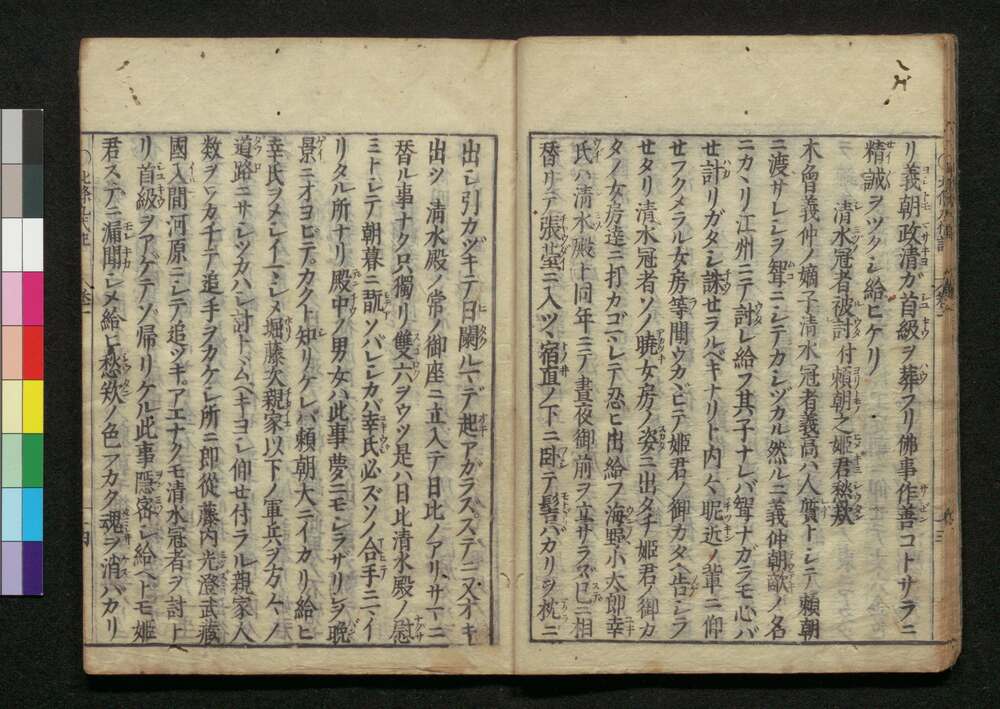 リ義朝政清ガ首級ヲ葬フリ佛事作善コトサラニ
精誠ヲツクシ給ヒケリ
清水冠者被討付頼朝之姫君愁歎
木曾義仲ノ嫡子清水冠者義高ハ人質トシテ頼朝
ニ渡サレシヲ聟ニシテカシヅカル然ルニ義仲朝敵ノ名
ニカヽリ江州ニテ討レ給フ其子ナレバ聟ナガラモ心バ
セ計リガタシ誅セラルベキナリト内々昵近ノ輩ニ仰
セフクメラル女房等聞ウカヾヒテ姫君ノ御カタヘ告シラ
セタリ清水冠者ソノ曉女房ノ姿ニ出タチ姫君ノ御カ
タノ女房達ニ打カコマレテ忍ヒ出給フ海野小太郎幸
氏ハ清水殿ト同年ニテ晝夜御前ヲ立サラズ已ニ相
替リテ張臺ニ入ツヽ宿直ノ下ニ臥テ髻バカリヲ枕ニ
出シ引カヅキテ日闌ルマデ起アガラズステニ又オキ
出ツヽ清水殿ノ常ノ御座ニ立入テ日比ノアリサマニ
替ル事ナク只獨リ雙六ヲウツ是ハ日比清水殿ノ慰
ミトシテ朝暮ニ翫ソバレシカバ幸氏必ズソノ合手ニマイ
リタル所ナリ殿中ノ男女ハ此事夢ニモシラザリシヲ晩
景ニオヨビテカクト知リケレバ頼朝大ニイカリ給ヒ
幸氏ヲメシイマシメ堀藤次親家以下ノ軍兵ヲ方々ノ
道路ニサシツカハシ討トヾムベキヨシ仰セ付ラル親家人
数ヲワカチテ追手ヲカケシ所ニ郎從藤内光澄武藏
國入間河原ニシテ追ツキアエナクモ清水冠者ヲ討ト
リ首級ヲアゲテゾ帰リケル此事隱密シ給ヘトモ姫
君ステニ漏聞シメ給ヒ愁歎ノ色フカク魂ヲ消バカリ